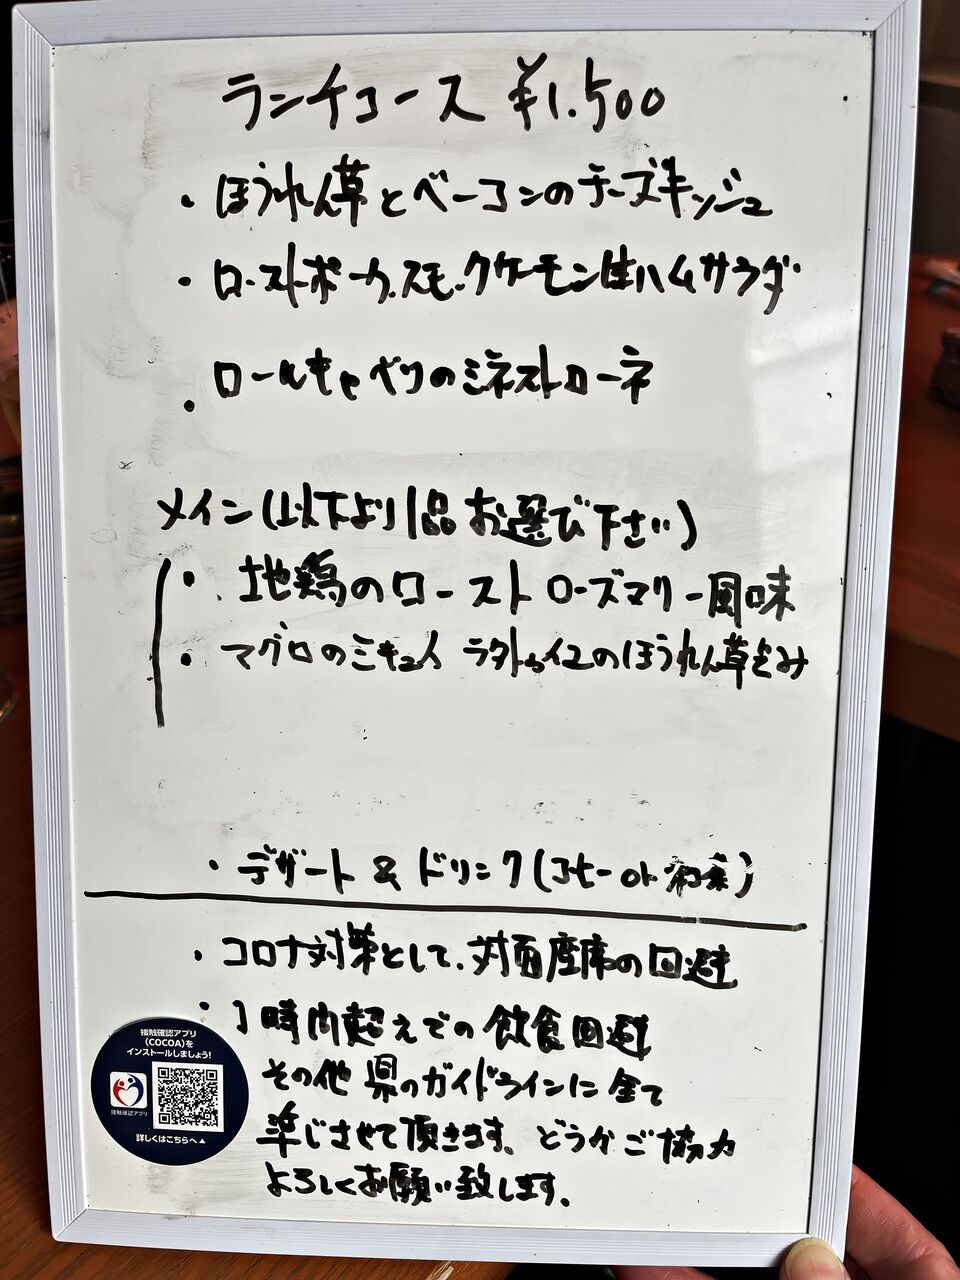 ランチコース ¥1.500
・ほうれん草とベーコンのチーズキッシュ
・ローストポーク.スモークサーモン生ハムサラダ
・ロールキャベツのミネストローネ
メイン(以下より1品お選び下さい)
・地鶏のロースト ローズマリー風味
・マグロのミキュイ ラタトゥイユのほうれん草包み
・デザート & ドリンク(コーヒー or 紅茶)
・コロナ対策として、対面座席の回避
・1時間超えでの飲食回避
その他 県のガイドラインに全て
準じさせて頂きます。どうかご協力
よろしくお願い致します。
接触確認アプリ
(COCOA)を
インストールしましょう!
接触確認アプリ
詳しくはこちらへ▲